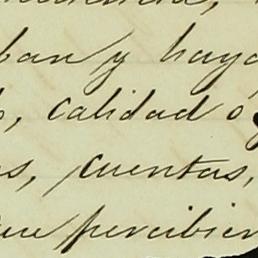 ban y haya
, calidad ó
s, cuentas,
que percibier